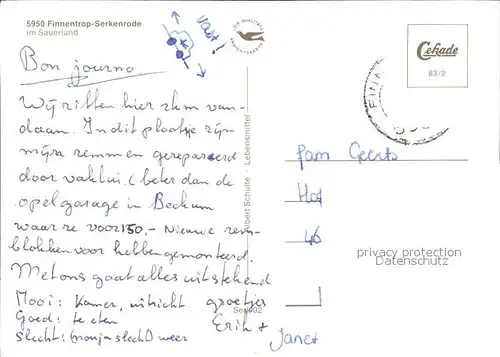 5950 Finnentrop-Serkenrode
im Sauerland
Vast!
DIE QUALITÄTS
ANSICHTSKARTE
Cekade
83/2
FINN
Bon journo
Wij ritten hier zkm van-
daan. In dit plaatsje zijn
mijn remmen gerepareerd
door vaklui (beter dan de
opelgarage in Beckum
waar ze voor 150,- Nieuwe rem-
blokken voor hebben gemonteerd.
Met ons gaat alles uitstekend
Mooi: Kamer, uitzicht groetjes
Goed: te eten Erik +
Slecht: (nou ja slecht) weer Janet
Albert Schulte - Lebensmittel
Ser 002
Jam Geerts
Hof
46
privacy protection
Datenschutz